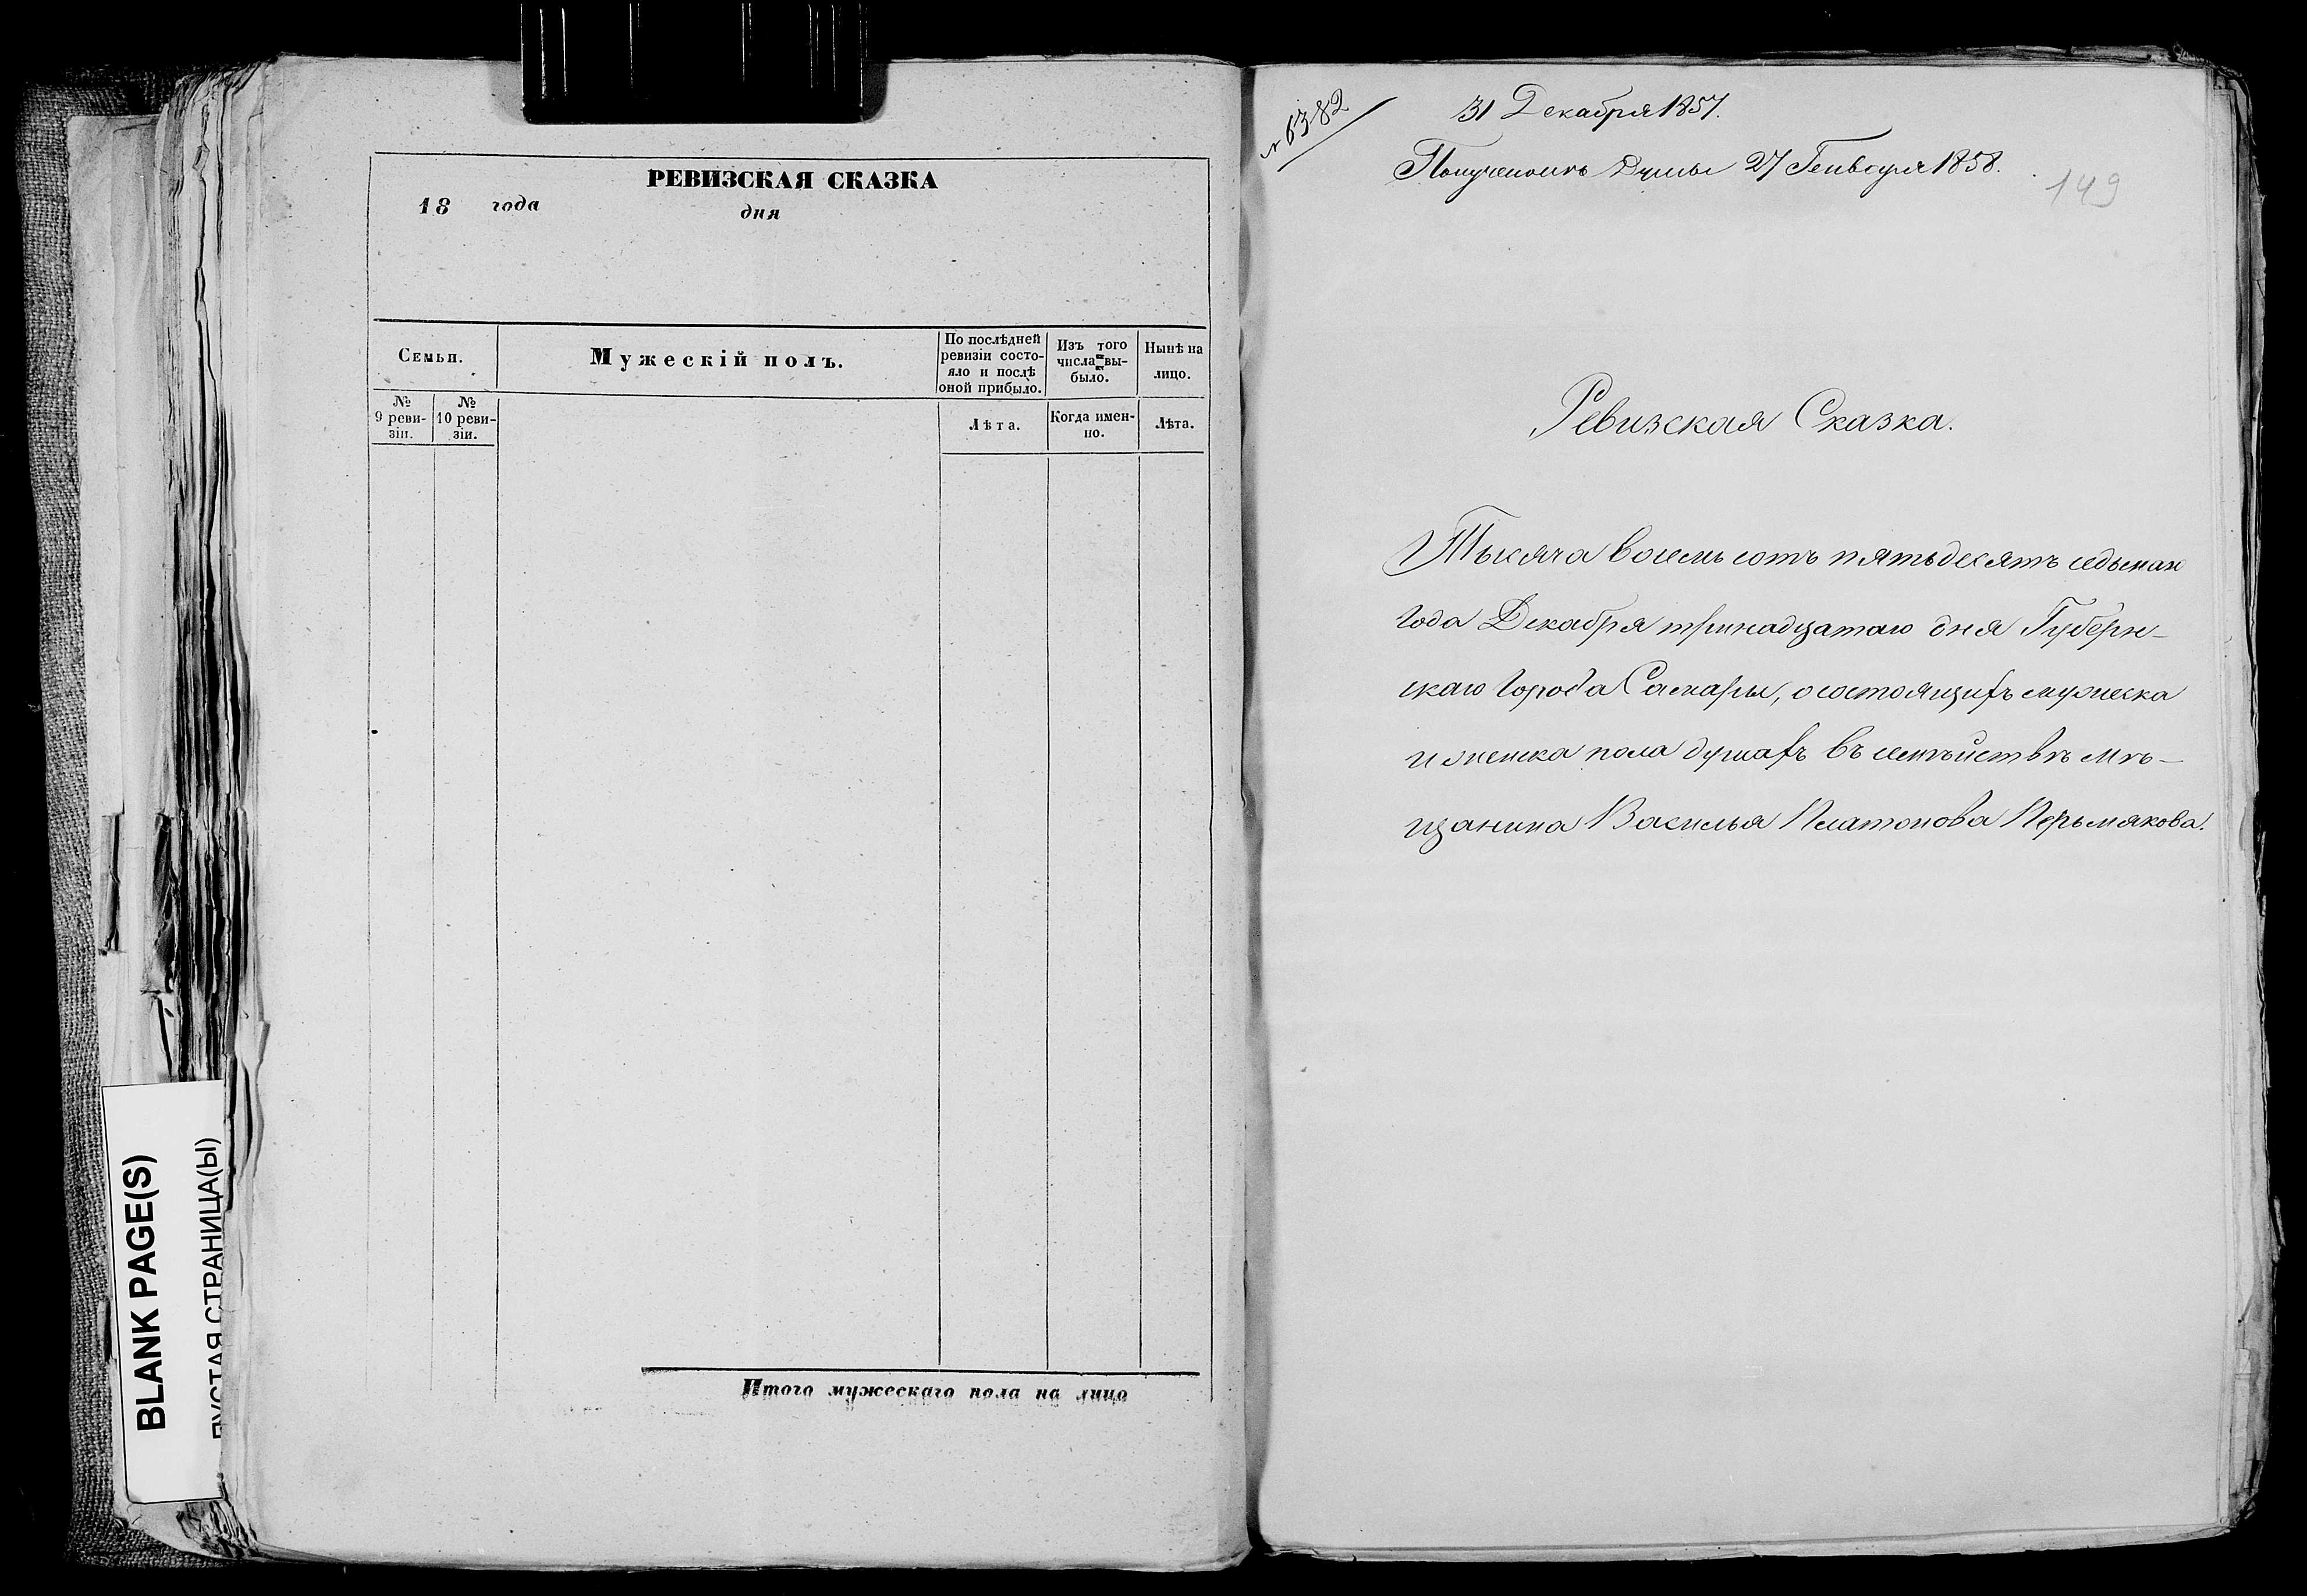 РЕВИЗСКАЯ СКАЗКА
18 года дня
Семьи.
Мужескій полъ.
По послѣдней
ревизіи состо-
яло и послѣ
оной прибыло.
Изъ того
числа вы-
было.
Нынѣ на
лицо.
№
9 реви-
зіи.
№
10 реви-
зіи.
Лѣта.
Когда имен-
но.
Лѣта.
Итого мужескаго пола на лицо
BLANK PAGE(S)
ПУСТАЯ СТРАНИЦА(Ы)
№ 6382
31 Декабря 1857.
Думы 27 Генваря 1858.
149
Ревизская Сказка.
Тысяча восемь сотъ пятьдесятъ седьмаго
года Декабря тринадцатаго дня Губерн-
скаго города Самары, о состоящихъ мужеска
и женска пола душахъ въ семѣйствѣ мѣ-
щанина Василья Платонова Перьмякова.